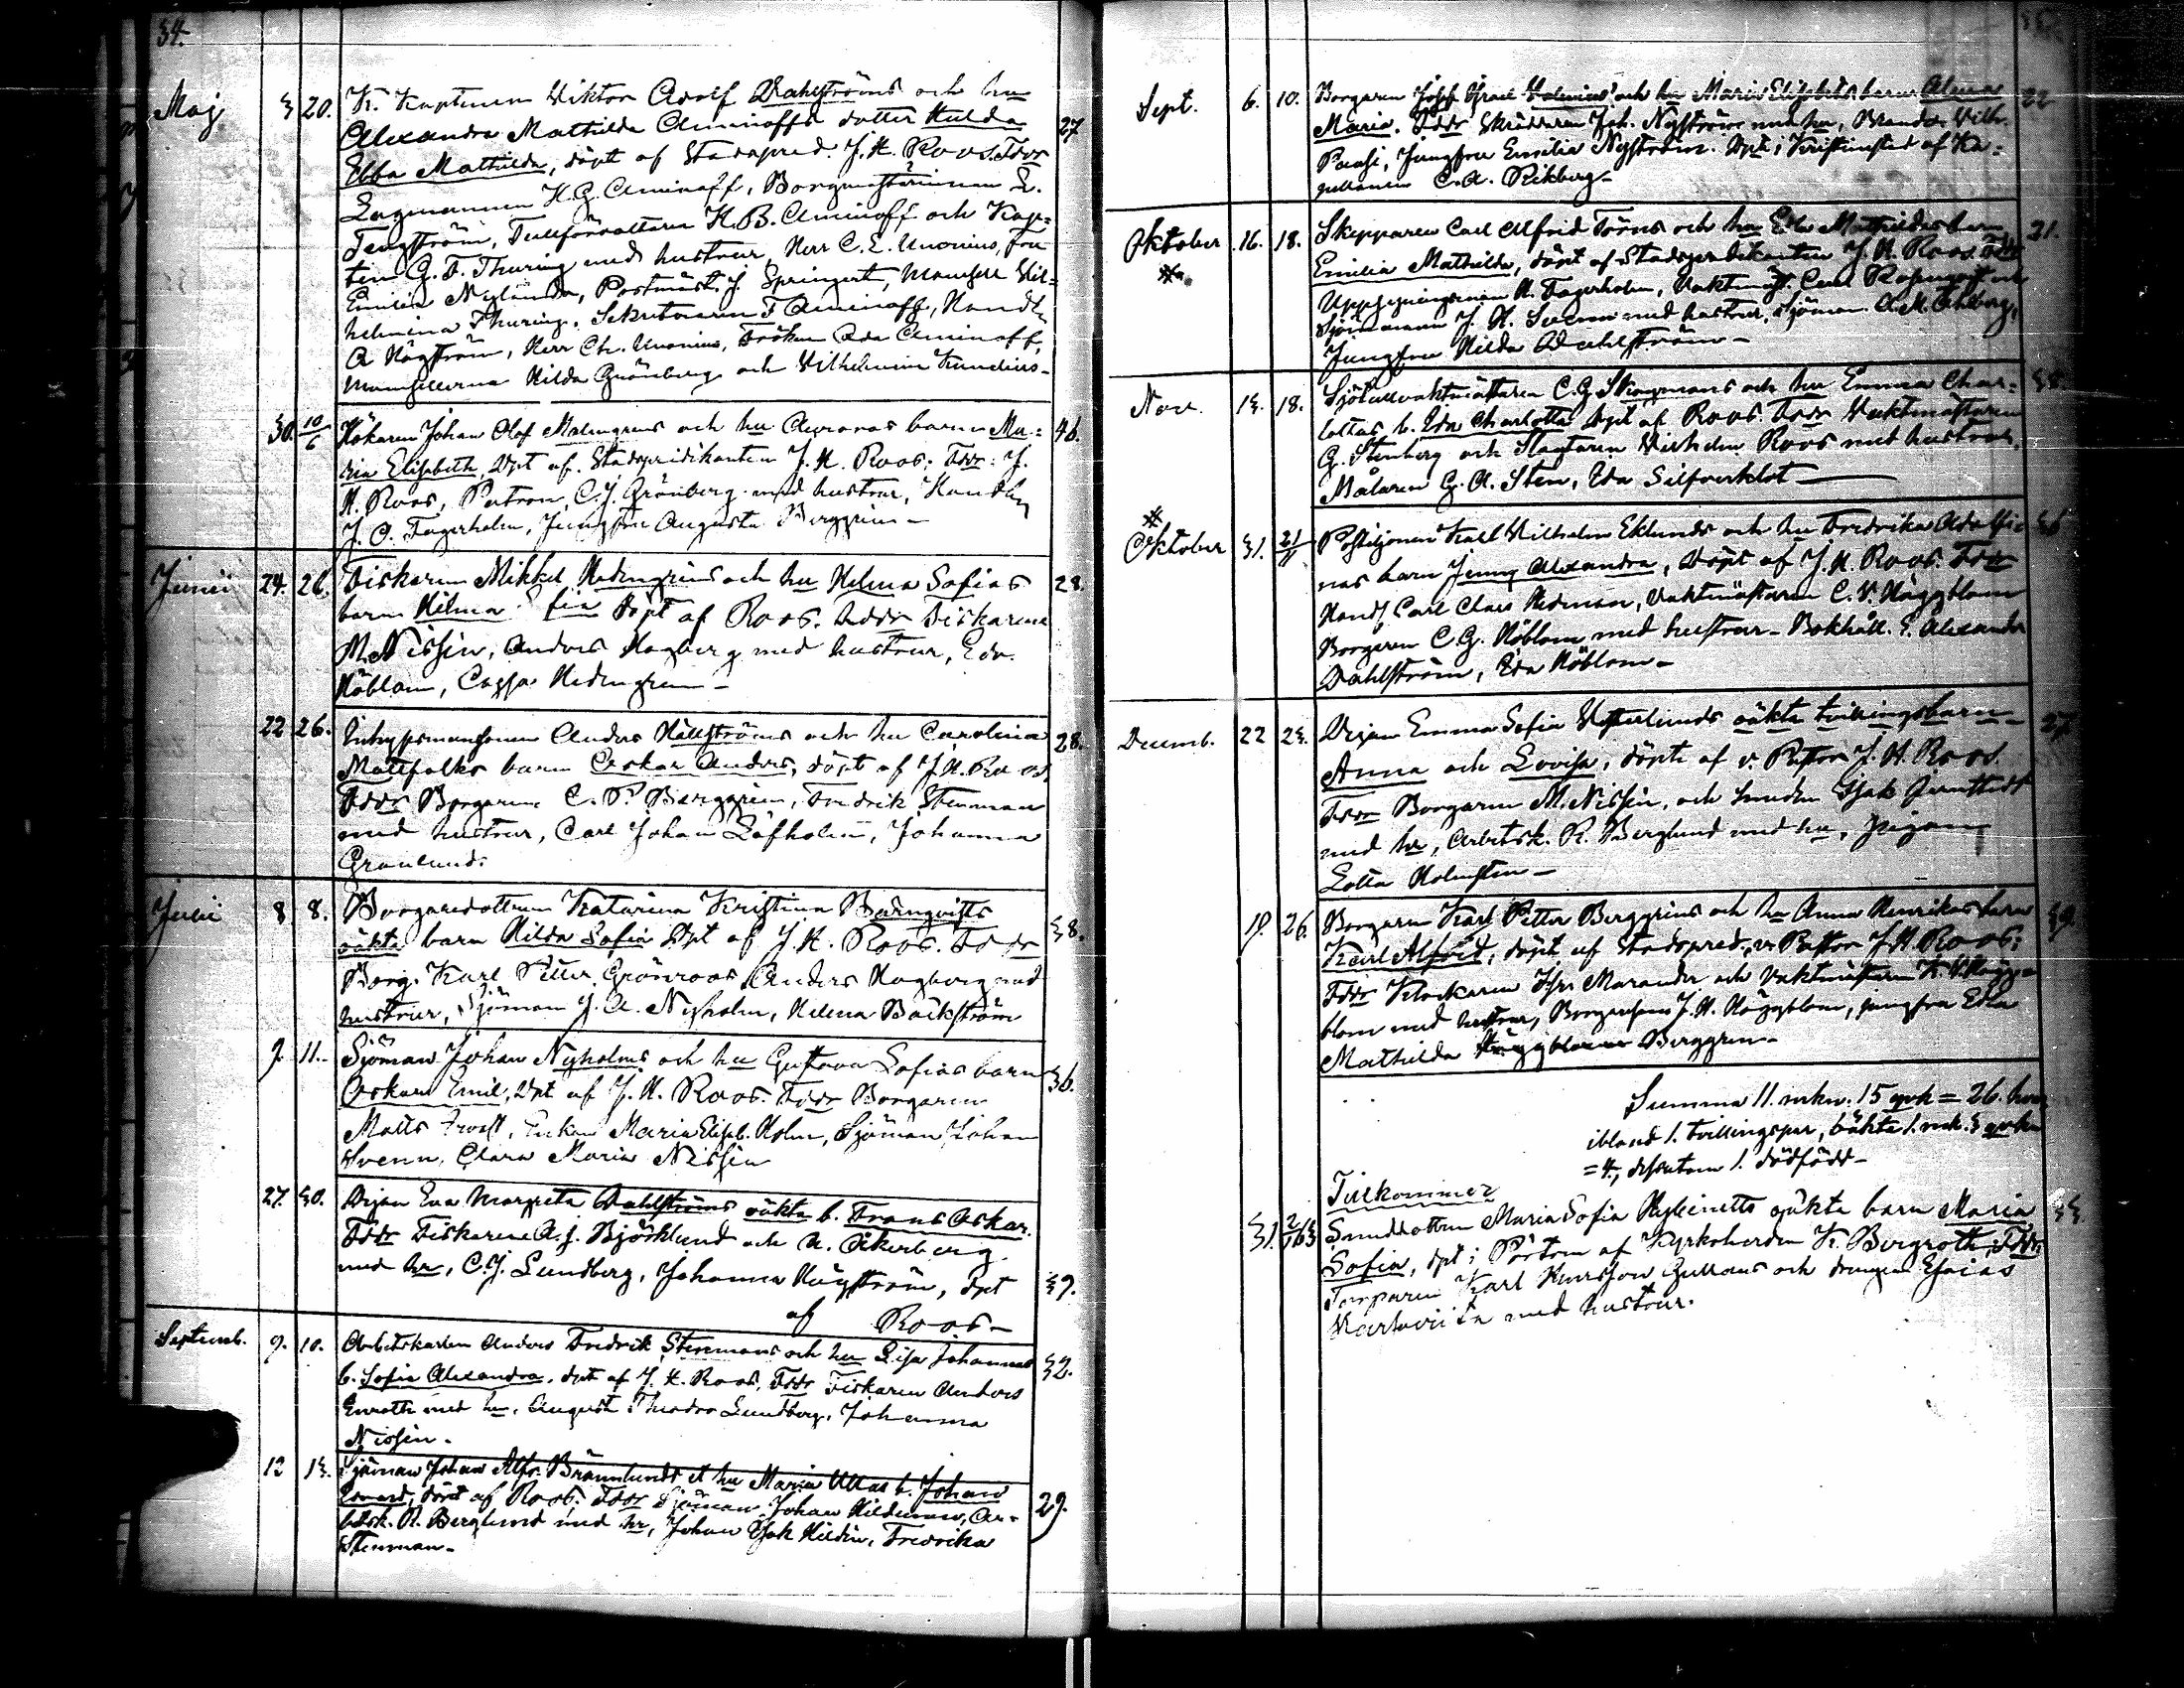 34.
Maj 3 20. K. Kaptenen Viktor Adolf Dahlströms och hu
Alexandra Mathilda Aminoffs dotter Hulda 27
Ebba Mathilda, döpt af Stadspred. J. H. Roos. Fddr
Lagmannen H. G. Aminoff, Borgmästarinnan L.
Tengström, Tullförvaltaren H. B. Aminoff och Kap=
ten G. F. Thuring med hustrur, Herr C. E. Unonius, Fru
Emilia Nylander, Postmäst. J. Springert, Mamsell Vil=
helmina Thuring, Sekreteraren F Aminoff, Handl.
A Högström, Herr Ch. Unonius, Fröken Ida Aminoff,
Mamsellerna Hilda Grönberg och Vilhelmina
30. 10/6 Hökaren Johan Olof Malmgrens och hu Auroras barn Ma= 46.
ria Elisabeth Dpt af Stadspredikanten J. H. Roos. Fddr: J.
H. Roos, Patron C. J. Grönberg med hustrur, Handl.
J. O. Fagerholm, Jungfru Augusta Berggren -
Junii 24. 26. Fiskaren Mikkel Hedengrens och hu Helena Sofias 28.
barn Hilma Sofia Döpt af Roos. Fddr Fiskarena
M. Nissén, Anders Hagberg med hustrur, Edv.
Höblom, Cajsa Hedengren -
22 26. Anders Hällströms och hu Carolina 28.
Mattfolks barn Oskar Anders, döpt af J. H. Roos,
Fddr Borgarene C. P. Berggren, Fredrik Stenman
med hustrur, Carl Johan Löfholm, Johanna
Granlund.
Julii 8 8. Borgaredottren Katarina Kristina Bernqvists
oäkta barn Hilda Sofia Dpt af J. H. Roos. Fddr 38.
Borg. Karl Petter Grönroos Anders Hagberg med
hustrur, Sjöman J. A. Nyholm, Helena Bäckström
9. 11. Sjöman Johan Nyholms och hu Gustava Sofias barn
Oskar Emil, Dpt af J. H. Roos. Fddr Borgaren 36.
Matts Frost, Enkan Maria Elisab. Holm, Sjöman Johan
Svenn, Clara Maria Nissén
27. 30. Pigan Eva Margreta Dahlströms oäkta b. Frans Oskar.
Fddr Fiskarena A. J. Björklund och A. Åkerberg
med hr, C. J. Lundberg, Johanna Högström, dpt 39.
af Roos -
Septemb. 9. 10. Arbetskarlen Anders Fredrik Stenmans och hu Lisa Johannas 32.
b. Sofia Alexandra, dpt af J. H. Roos, Fddr Fiskaren Anders
Enroth med hu, August Theodor Lundberg, Johanna
Nissén.
12 13. Sjöman Johan Alfr. Brännlunds & hu Maria Ullas b. Johan
Edvard, döpt af Roos; Fddr Sjöman Johan Hildeman, Ar= 29.
betsk. R. Berglund med hr, Johan Isak Hildén, Fredrika
Stenman -
35
Sept. 6. 10. Borgaren Josef Israel och hu Maria Elisabets barn Alma 22
Maria. Fddr Skräddaren Joh. Nyström med hu, Vilh.
Paasi, Jungfru Emilia Nyström. Dpt i Kristinestad af Ka=
pellanen C. A. Rikberg -
Oktober 16. 18. Skepparen Carl Alfrid Törns och hu Edla Mathildas barn 31.
Emilia Mathilda, döpt af Stadspredikanten J. H. Roos. Fddr
Uppsyningsman H. Fagerholm, Vaktmäst. Carl och
Sjömannen J. H. Svenn med hustrur, Sjöman A. M. Åhlberg,
Jungfru Hilda Dahlström -
Nov. 13. 18. Sjötullvaktmästaren C. G. Skogmans och hu Emma Char= 38.
lottas b. Ida Charlotta Dpt af Roos. Fddr Vaktmästaren
G. Stenberg och Slagtaren Vilhelm Roos med hustrur,
Målaren G. A. Sten, Ida Silfverklot
Oktober 31. 21/11 Postiljonen Karl Vilhelm Eklunds och hu Fredrika Adolfi= 36
nas barn Jenny Alexandra, Döpt af J. H. Roos. Fddr
Handl Carl Claes Hedman, Vaktmästaren C. V. Häggblom
Borgaren C. G. Höblom med hustrur - Bokhåll. E. Alexander
Dahlström, Ida Höblom -
Decemb. 22 23. Pigan Emma Sofia Vesterlunds oäkta tvillingsbarn 27.
Anna och Lovisa, döpte af v. Pastor J. H. Roos.
Fddr Borgaren M. Nissén, och Smeden Isak
med hr, Arbetsk. R. Berglund med hu, pigan
Lotta Holmsten -
19. 26. Borgaren Karl Petter Berggrens och hu Anna Henrikas barn 39.
Karl Alfrid, döpt af Stadspred. v. Pastor J. H. Roos;
Fddr Klockaren Marander och Vaktmästaren K. V. Hägg=
blom med hustrur, Borgareson J. H. Häggblom, jungfru Edla
Mathilda Berggren -
Summa 11. mkn. 15 qvk = 26. hvar
ibland 1. tvillingspar, oäkta 1. mk. 3 qvkn
= 4, dessutom 1. dödfödd -
Tillkommer
31. Smeddottren Maria Sofia oäkta barn Maria 33.
Sofia, dpt i Pörtom af Kyrkoherden K. Bergroth, Fddr
Torparen Karl och drengen Esaias
med hustrur.